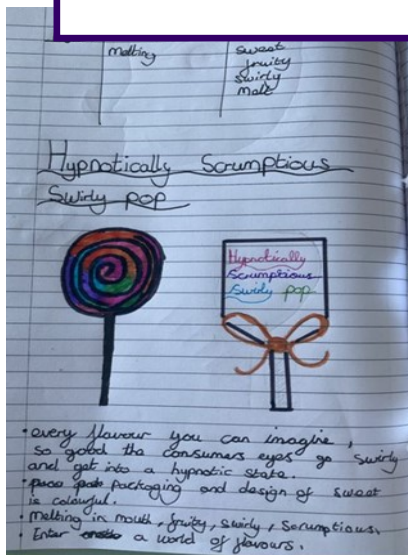 melting sweet
fruity
swirly
malt
Hypnotically Scrumptious
Swirly pop
Hypnotically
Scrumptious
Swirly pop
• every flavour you can imagine,
so good the consumers eyes go swirly
and get into a hypnotic state.
• packaging and design of sweet
is colourful.
• Melting in mouth, fruity, swirly, scrumptious.
• Enter a world of flavours.